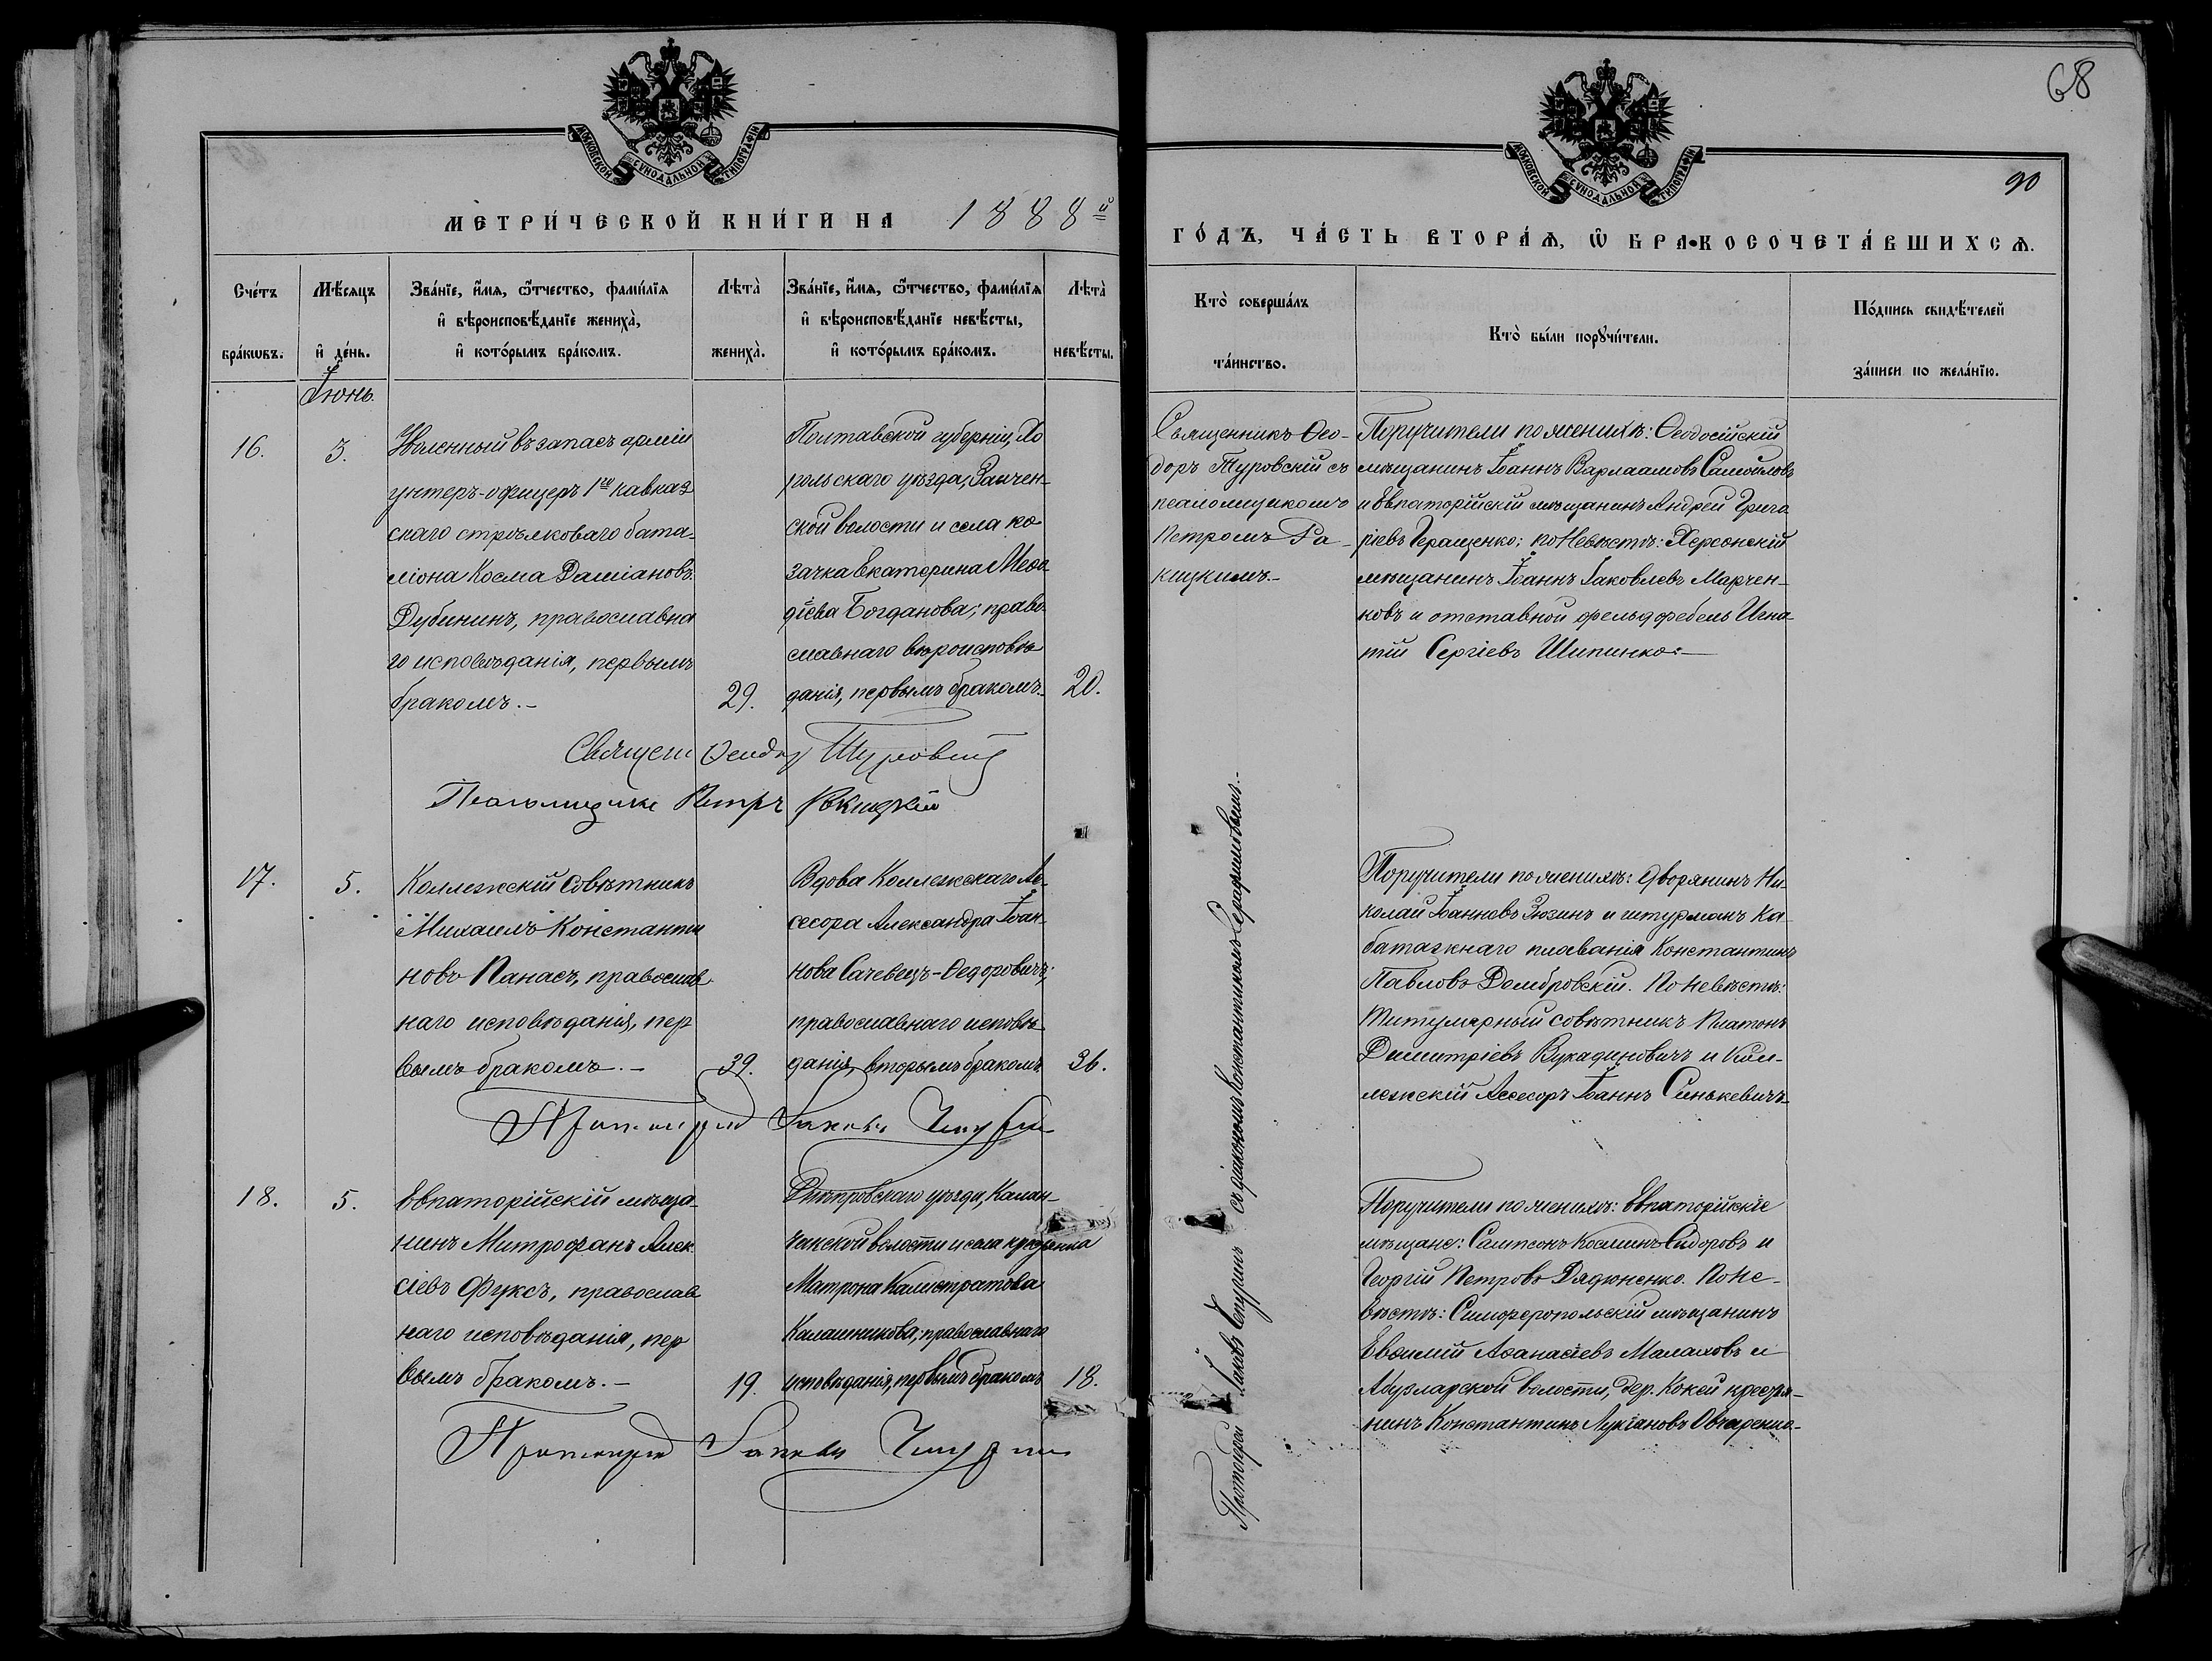 68
90
МОСКОВСКОЙ СѴНОДАЛЬНОЙ ТИПОГРАФІИ
МОСКОВСКОЙ СѴНОДАЛЬНОЙ ТИПОГРАФІИ
МЕТРИ́ЧЕСКОЙ КНИ́ГИ НА 1888й
ГО́ДЪ, ЧА́СТЬ ВТОРА́Ѧ, Ѽ БРАКОСОЧЕТА́ВШИХСѦ.
Сче́тъ бра́кѡвъ.
Мѣ́сяцъ и҆ де́нь.
Зва́нїе, и҆́мѧ, ѻ҆́тчество, фами́лїѧ
и҆ вѣроисповѣ́данїе жениха̀,
и҆ кото́рымъ бра́комъ.
Лѣта̀ жениха̀.
Зва́нїе, и҆́мѧ, ѻ҆́тчество, фами́лїѧ
и҆ вѣроисповѣ́данїе невѣ́сты,
и҆ кото́рымъ бра́комъ.
Лѣта̀ невѣ́сты.
Кто̀ соверша́лъ
та́инство.
Кто̀ бы́ли порꙋчи́тели.
По́дпись свидѣ́телей
за́писи по жела́нїю.
Іюнь.
16.
3.
Уволенный въ запасъ арміи
унтеръ-офицеръ 1го Кавказ
скаго стрѣлковаго бата-
ліона Косма Даміановъ
Дубининъ, православна
го исповѣданія, первымъ
бракомъ.-
29.
Полтавской губерніи, Хо
рольскаго уѣзда,
ской волости и села ка
зачка Екатерина Меѳо-
діева Богданова; право-
славнаго вѣроисповѣ
данія, первымъ бракомъ.-
20.
Священникъ Ѳео-
доръ Туровскій съ
псаломщикомъ
Петромъ Ра-
кицкимъ.-
Поручители по женихѣ: Ѳеодосійскій
мѣщанинъ Іоаннъ Варлаамовъ Самойловъ
и Евпаторійскій мѣщанинъ Андрей Григо
ріевъ Геращенко; по невѣстѣ: Херсонскій
мѣщанинъ Іоаннъ Іаковлевъ Марчен-
ковъ и отставной фельдфебель Игна-
тій Сергіевъ Шипинко.-
Священ Ѳеодор Туровскій
Псаломщикъ Петръ Ракицкій
17.
5.
Коллежскій Совѣтникъ
Михаилъ Константи
новъ Панасъ, православ
наго исповѣданія, пер
вымъ бракомъ.-
39.
Вдова Коллежскаго Ас-
сесора Александра Іоан-
нова Сачевецъ-Ѳедоровичъ;
православнаго исповѣ
данія, вторымъ бракомъ
36.
Протоіерей Іаковъ Чепуринъ съ діакономъ Константиномъ Серафимовымъ.-
Поручители по женихѣ: дворянинъ Ни-
колай Іоанновъ Зюзинъ и штурманъ ка-
батажнаго плаванія Константинъ
Павловъ Домбровскій. По невѣстѣ:
Титулярный совѣтникъ Платонъ
Димитріевъ Вукадиновичъ и Кол-
лежскій Ассесоръ Іоаннъ Синькевичъ.-
Протоіерей Іаковъ Чепурин
18.
5.
Евпаторійскій мѣща-
нинъ Митрофанъ Алек
сіевъ Фуксъ, православ
наго исповѣданія, пер
вымъ бракомъ.-
19.
Днѣпровскаго уѣзда, Калан-
чакской волости и села крестьянка
Матрона Калистратова
Калашникова; православнаго
исповѣданія, первымъ бракомъ
18.
Поручители по женихѣ: Евпаторійскіе
мѣщане: Сампсонъ Косминъ Сидоровъ и
Георгій Петровъ Дядюненко. По не-
вѣстѣ: Симферопольскій мѣщанинъ
Евѳимій Аѳанасіевъ Малаховъ и
Абузларской волости, дер. Кокей крестья-
нинъ Константинъ Лукіановъ Овчаренко.-
Протоіерей Іаковъ Чепурин